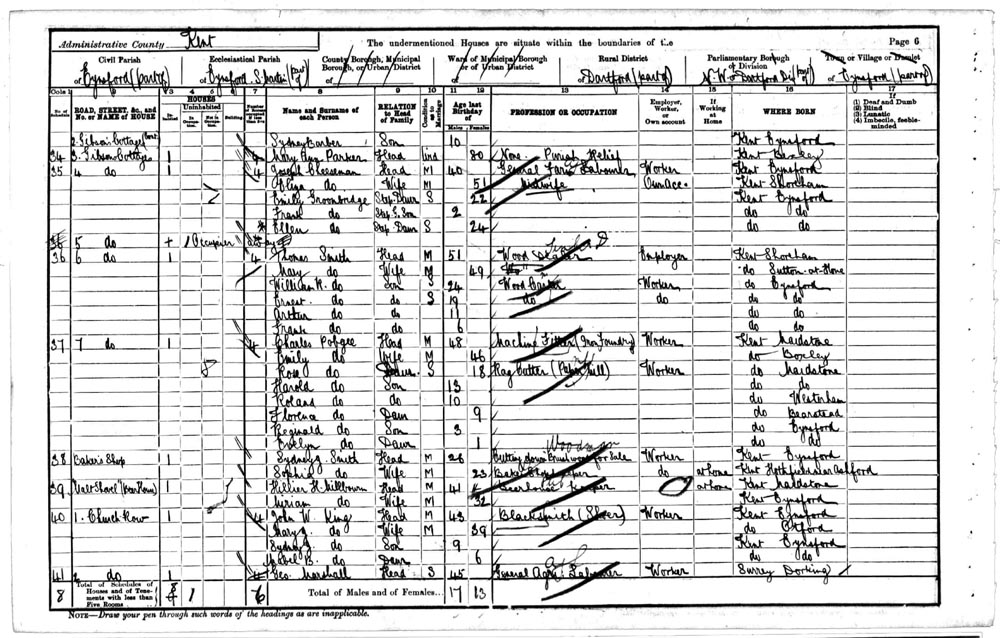 Administrative County Kent
The undermentioned Houses are situate within the boundaries of the
Page 6
Civil Parish
of Eynsford (part of)
Ecclesiastical Parish
of Eynsford S.
County Borough, Municipal Borough, or Urban District
of
Ward of Municipal Borough or of Urban District
of
Rural District
of Dartford (part of)
Parliamentary Borough or Division
of N.W. or Dartford Div (part of)
Town or Village or Hamlet
of Eynsford (part of)
Cols 1 2 3 4 5 6 7 8 9 10 11 12 13 14 15 16 17
No. of Schedule
ROAD, STREET, &c., and No. or NAME of HOUSE
HOUSES
Inhabited
Uninhabited
In Occupation
Not in Occupation
Building
Name and Surname of each Person
RELATION to Head of Family
Condition as to Marriage
Age last Birthday of
Males Females
PROFESSION OR OCCUPATION
Employer, Worker, or Own account
If Working at Home
WHERE BORN
If
(1) Deaf and Dumb
(2) Blind
(3) Lunatic
(4) Imbecile, feeble-minded
2 Gibson Cottages Sydney Barber Son 10 Kent Eynsford
34 3. Gibson Cottages 1 4 Mary Ann Parker Head 80 None Parish Relief Kent
35 4 do 1 4 Joseph Cheeseman Head M 40 General Farm Labourer Worker Kent Eynsford
Eliza do Wife M 51 Midwife Own Acc. Kent Shoreham
Emily Groombridge Step Daur S 22 Kent Eynsford
Frank do Step G. Son 2 do do
Ellen do Step Daur S 24 do do
5 do 1 Occupier
36 6 do 1 4 Thomas Smith Head M 51 Wood Dealer Employer Kent Shoreham
Mary do Wife M 49 do Sutton-at-Hone
William H. do Son S 24 Wood Worker do Eynsford
Ernest do do S 19 do do do do
Arthur do do 11 do do
Frank do do 6 do do
37 7 do 1 4 Charles Pobgee Head M 48 Machine Fitter (Iron Foundry) Worker Kent Maidstone
Emily do Wife M 46 do Boxley
Rose do Daur S 18 Rag Cutter (Paper Mill) Worker do Maidstone
Harold do Son 13 do do
Roland do do 10 do Westerham
Florence do Daur 9 do Bearstead
Reginald do Son 3 do Eynsford
Evelyn do Daur 1 do do
Woodman
38 Baker's Shop 1 Sydney J. Smith Head M 26 Cutting down Brushwood for Sale Worker Kent Eynsford
Sophia do Wife M 23 do at home Kent Hothfield near Ashford
39 Malt Shovel (Beer House) 1 Hillier H. Millbourn Head M 41 Beerhouse Keeper at home Kent Maidstone
Miriam do Wife M 32 Kent Eynsford
40 1. Church Row 1 4 John W. King Head M 43 Blacksmith (Shoer) Worker Kent Eynsford
Mary J. do Wife M 39 do Otford
Sydney J. do Son 9 Kent Eynsford
Mabel B. do Daur 6 do do
41 2 do 1 Geo. Marshall Head S 45 General Agri. Labourer Worker Surrey Dorking
8 Total of Schedules of Houses and of Tenements with less than Five Rooms 8 1 6 Total of Males and of Females... 17 13
NOTE—Draw your pen through such words of the headings as are inapplicable.